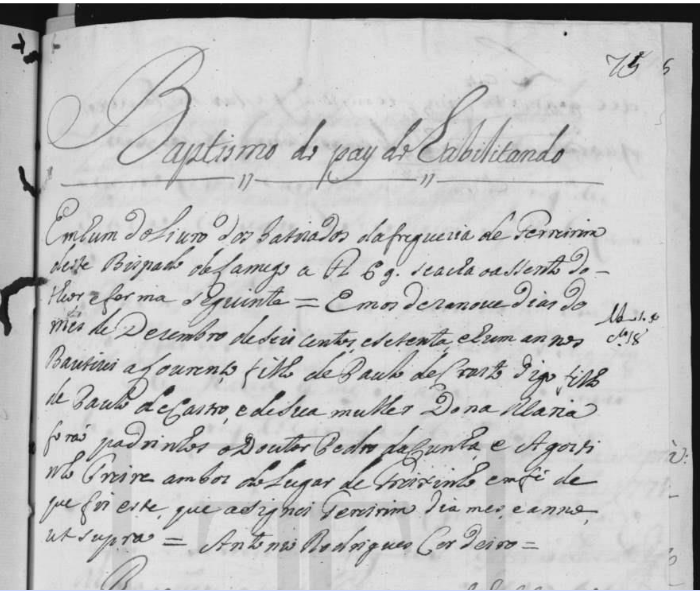 75
Baptismo do pay do Habilitando
Em hum do Livro dos Batizados da freguezia de Ferreirim
deste Bispado de Lamego a fl 69. se acha o assento do
theor e forma seguinte = Em os dezanove dias do
mes de Dezembro de seis centos e setenta e hum annos
Bautizei a Lourenço filho de Paulo de Crasto digo filho
de Paulo de Castro, e de sua mulher Dona Maria
forão padrinhos o Doutor Pedro da Cunha e Agosti
nho Freire ambos do Lugar de Freixinho em fé de
que fiz este, que asignei Fereirim dia mes, e anno,
ut supra = Antonio Rodrigues Cordeiro =